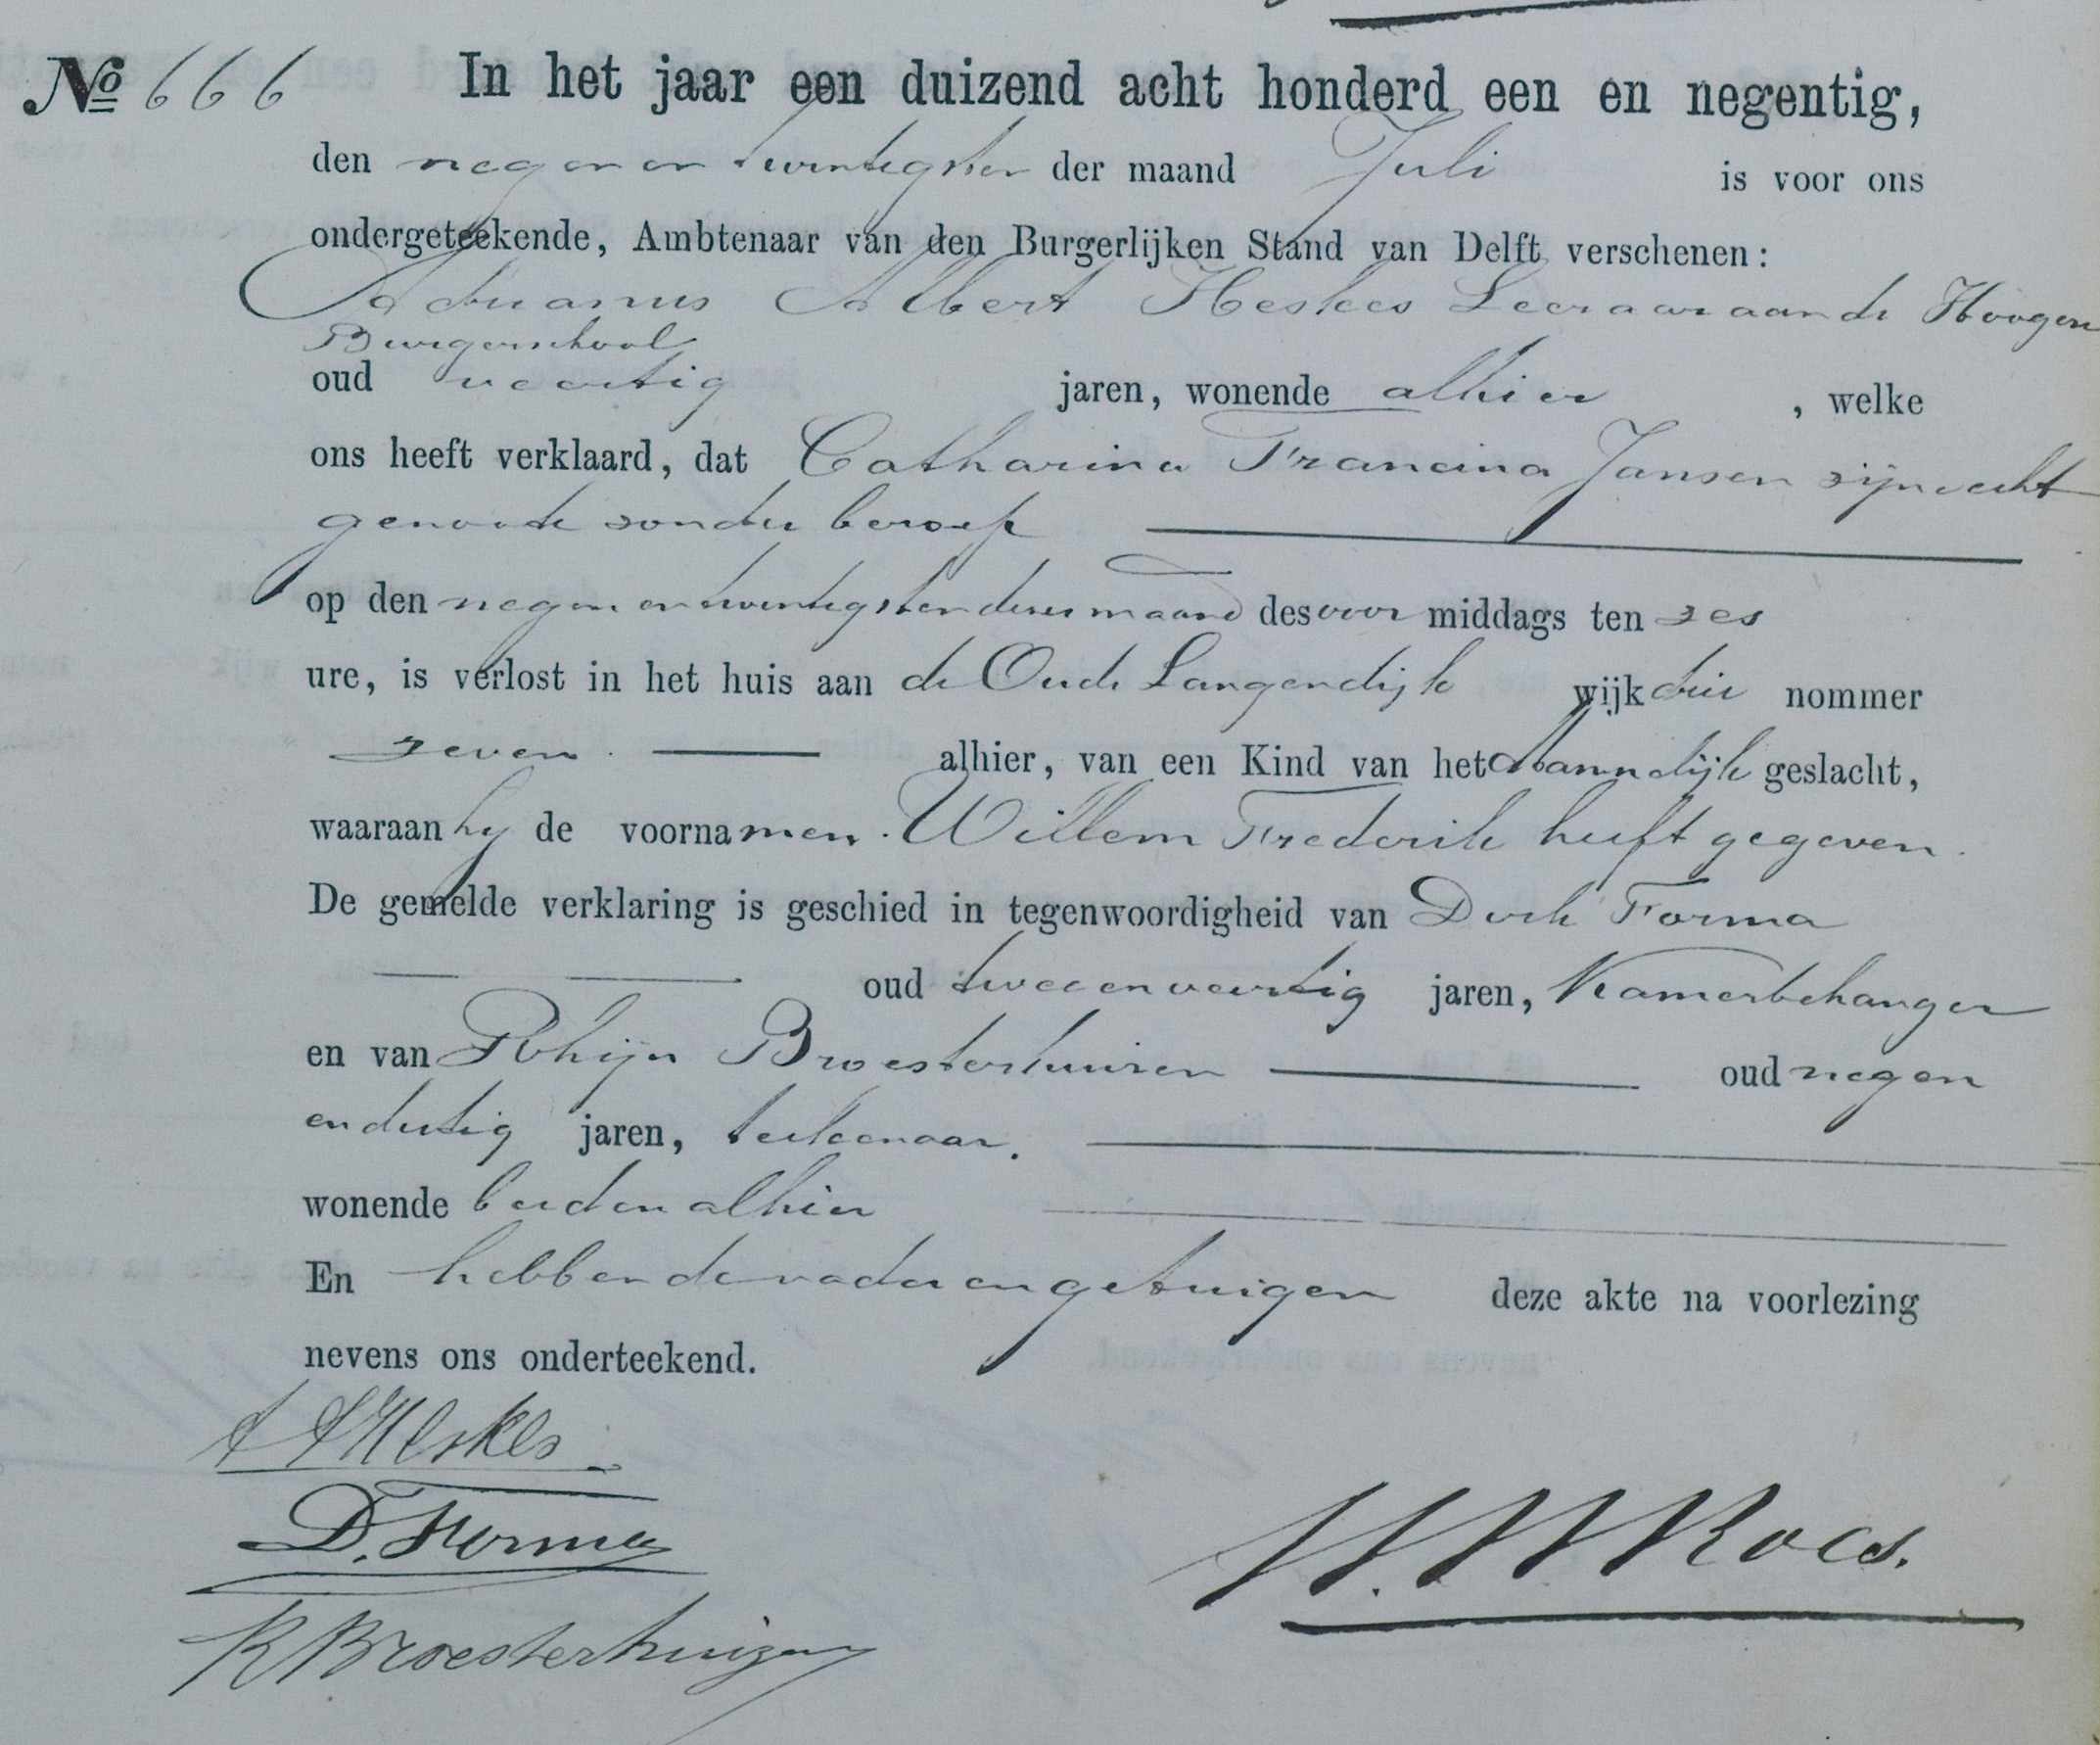 No 666 In het jaar een duizend acht honderd een en negentig,
den negenentwintigsten der maand Juli is voor ons
ondergeteekende, Ambtenaar van den Burgerlijken Stand van Delft verschenen:
Adrianus Albert Heskes Leeraar aan de Hoogere
Burgerschool
oud veertig jaren, wonende alhier, welke
ons heeft verklaard, dat Catharina Francina Jansen zijne echt
genoote zonder beroep
op den negenentwintigsten dezer maand des voor middags ten zes
ure, is verlost in het huis aan de Oude Langendijk wijk drie nommer
zeven. alhier, van een Kind van het Mannelijk geslacht,
waaraan hij de voornamen Willem Frederik heeft gegeven.
De gemelde verklaring is geschied in tegenwoordigheid van Dirk Forma
oud tweeenveertig jaren, Kamerbehanger
en van Rhijn Broesterhuizen oud negen
endertig jaren, teekenaar.
wonende beiden alhier
En hebben de vader en getuigen deze akte na voorlezing
nevens ons onderteekend.
A A Heskes
D. Forma
R Broesterhuizen